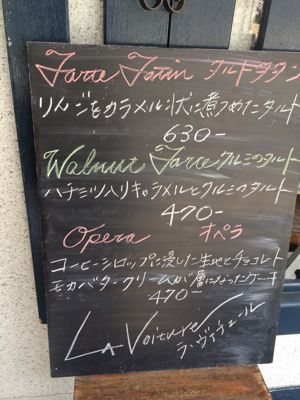 Tarte Tatin タルトタタン
リンゴをカラメル状に煮つめたタルト
630-
Walnut Tarte クルミのタルト
ハチミツ入リキャラメルとクルミのタルト
470-
Opera オペラ
コーヒーシロップに浸した生地とチョコレート
モカバタークリームが層になったケーキ
470-
LA Voiture
ラ・ヴァチュール